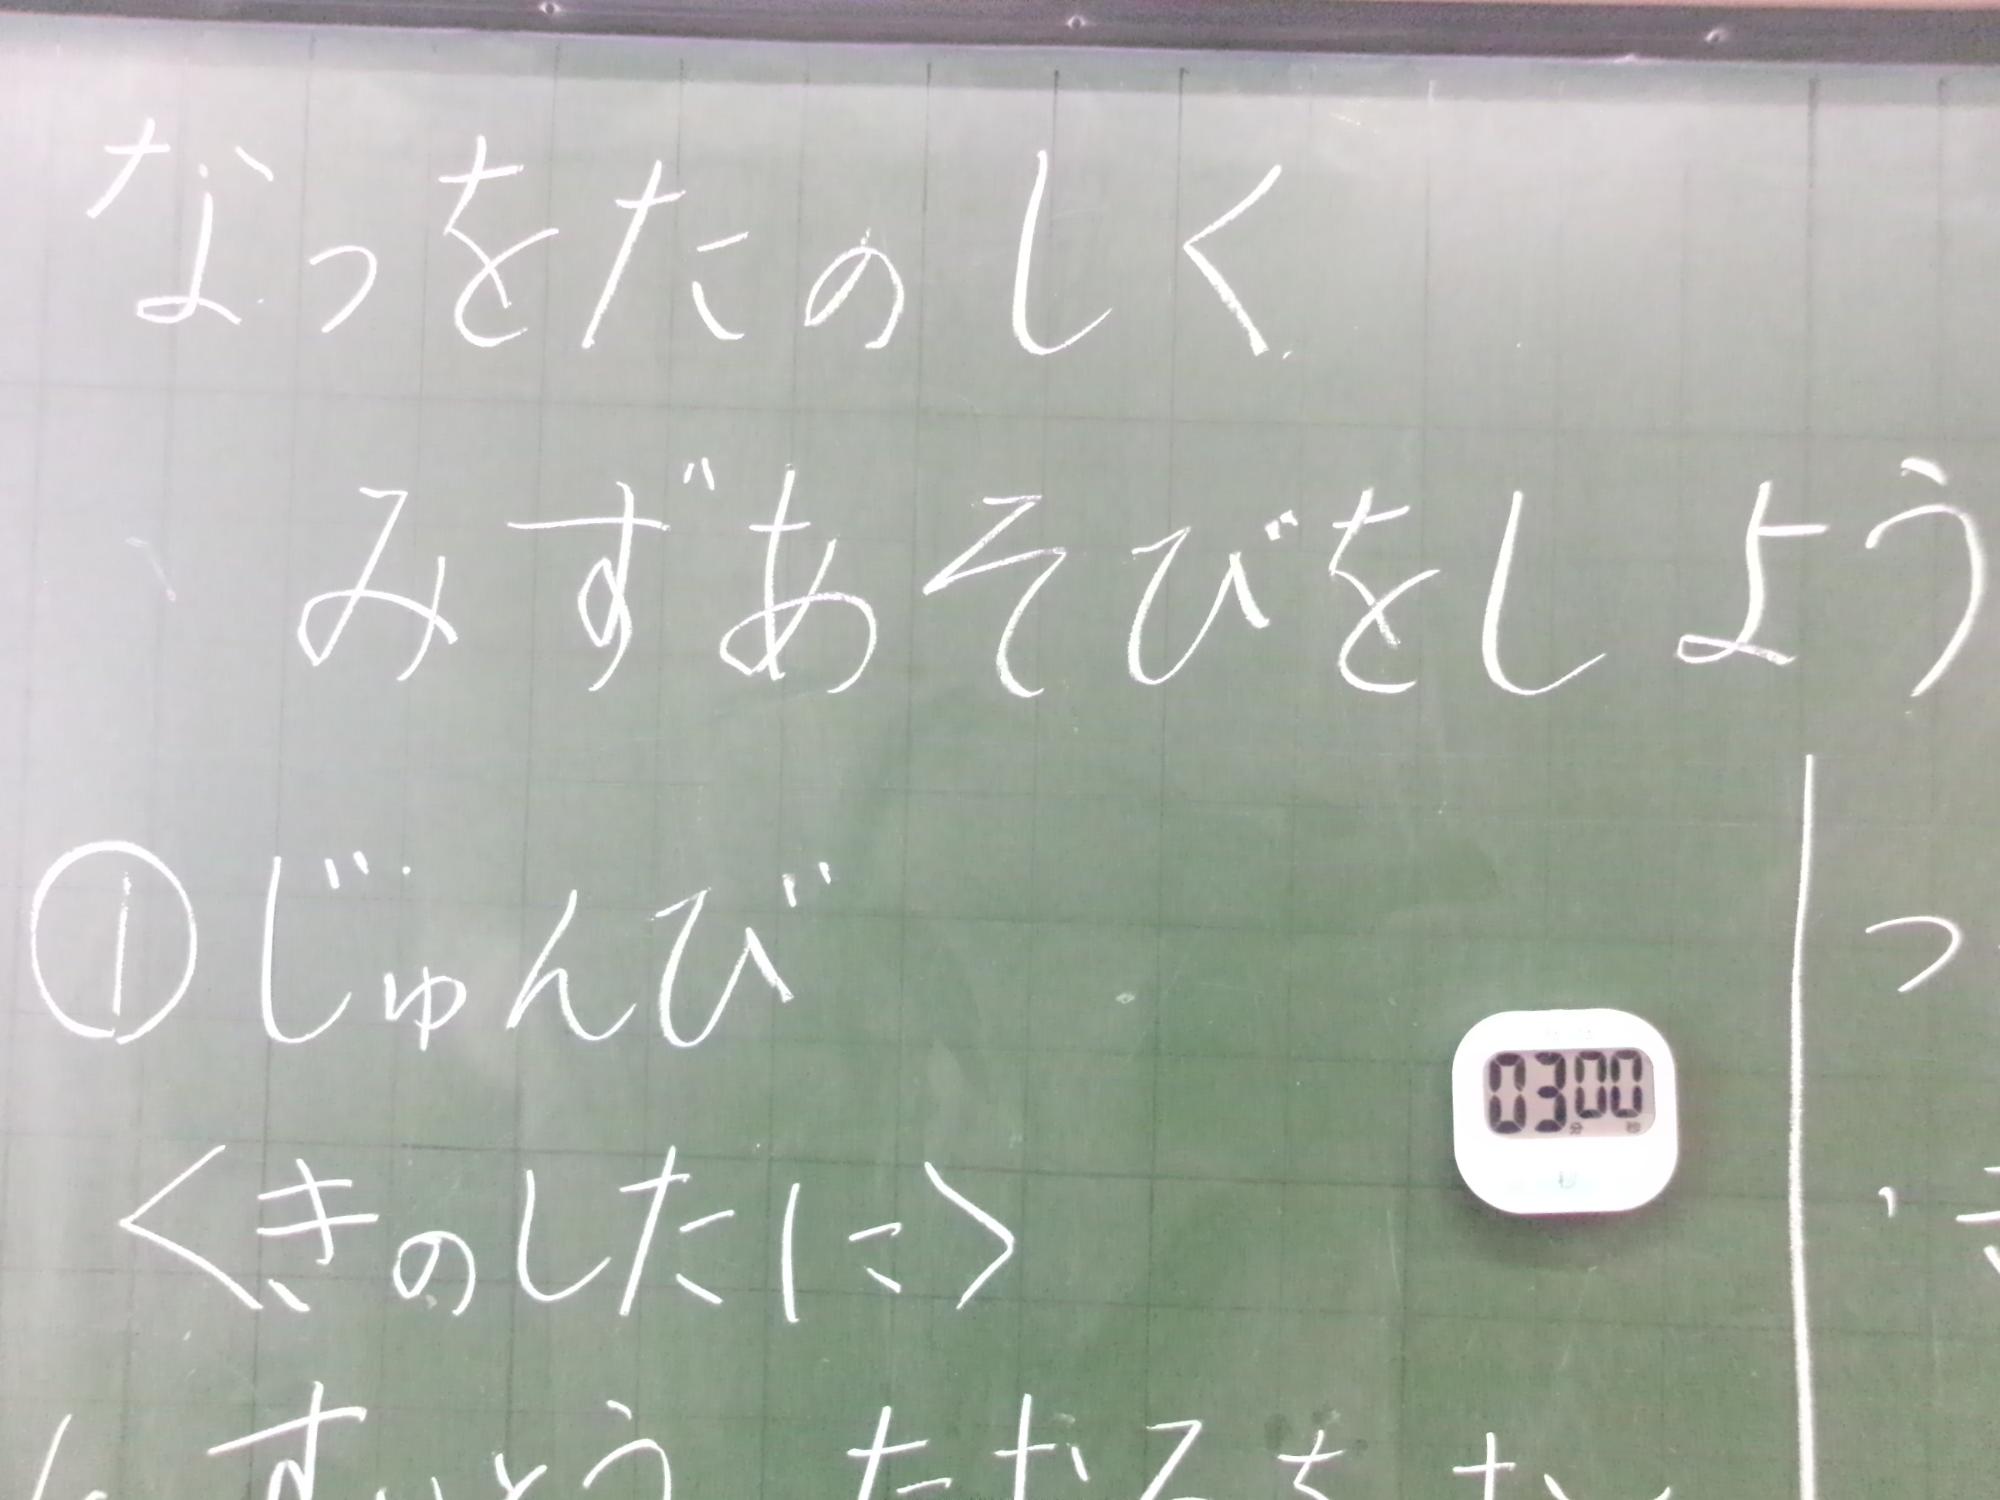 なつをたのしく
みずあそびをしよう
①じゅんび
<きのしたに>
03 00
分 秒